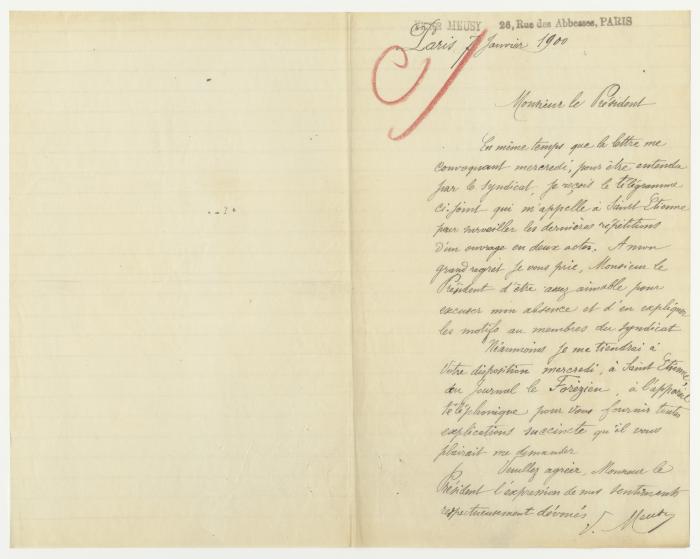 MEUSY 26, Rue des Abbesses, PARIS
Paris 7 Janvier 1900
Monsieur le Président
En même temps que la lettre me
convoquant mercredi, pour être entendu
par le Syndicat, je reçois le télégramme
ci-joint qui m'appelle à Saint Etienne
pour surveiller les dernières répétitions
d'un ouvrage en deux actes. A mon
grand regret je vous prie, Monsieur le
Président d'être assez aimable pour
excuser mon absence et d'en expliquer
les motifs au membres du Syndicat
Néanmoins je me tiendrai à
Votre disposition mercredi, à Saint Etienne,
au Journal le Forézien, à l'appareil
téléphonique pour vous fournir toutes
explications succincte qu'il vous
plairait me demander
Veuillez agréer, Monsieur le
Président l'expression de mes sentiments
respectueusement dévoués
V. Meusy